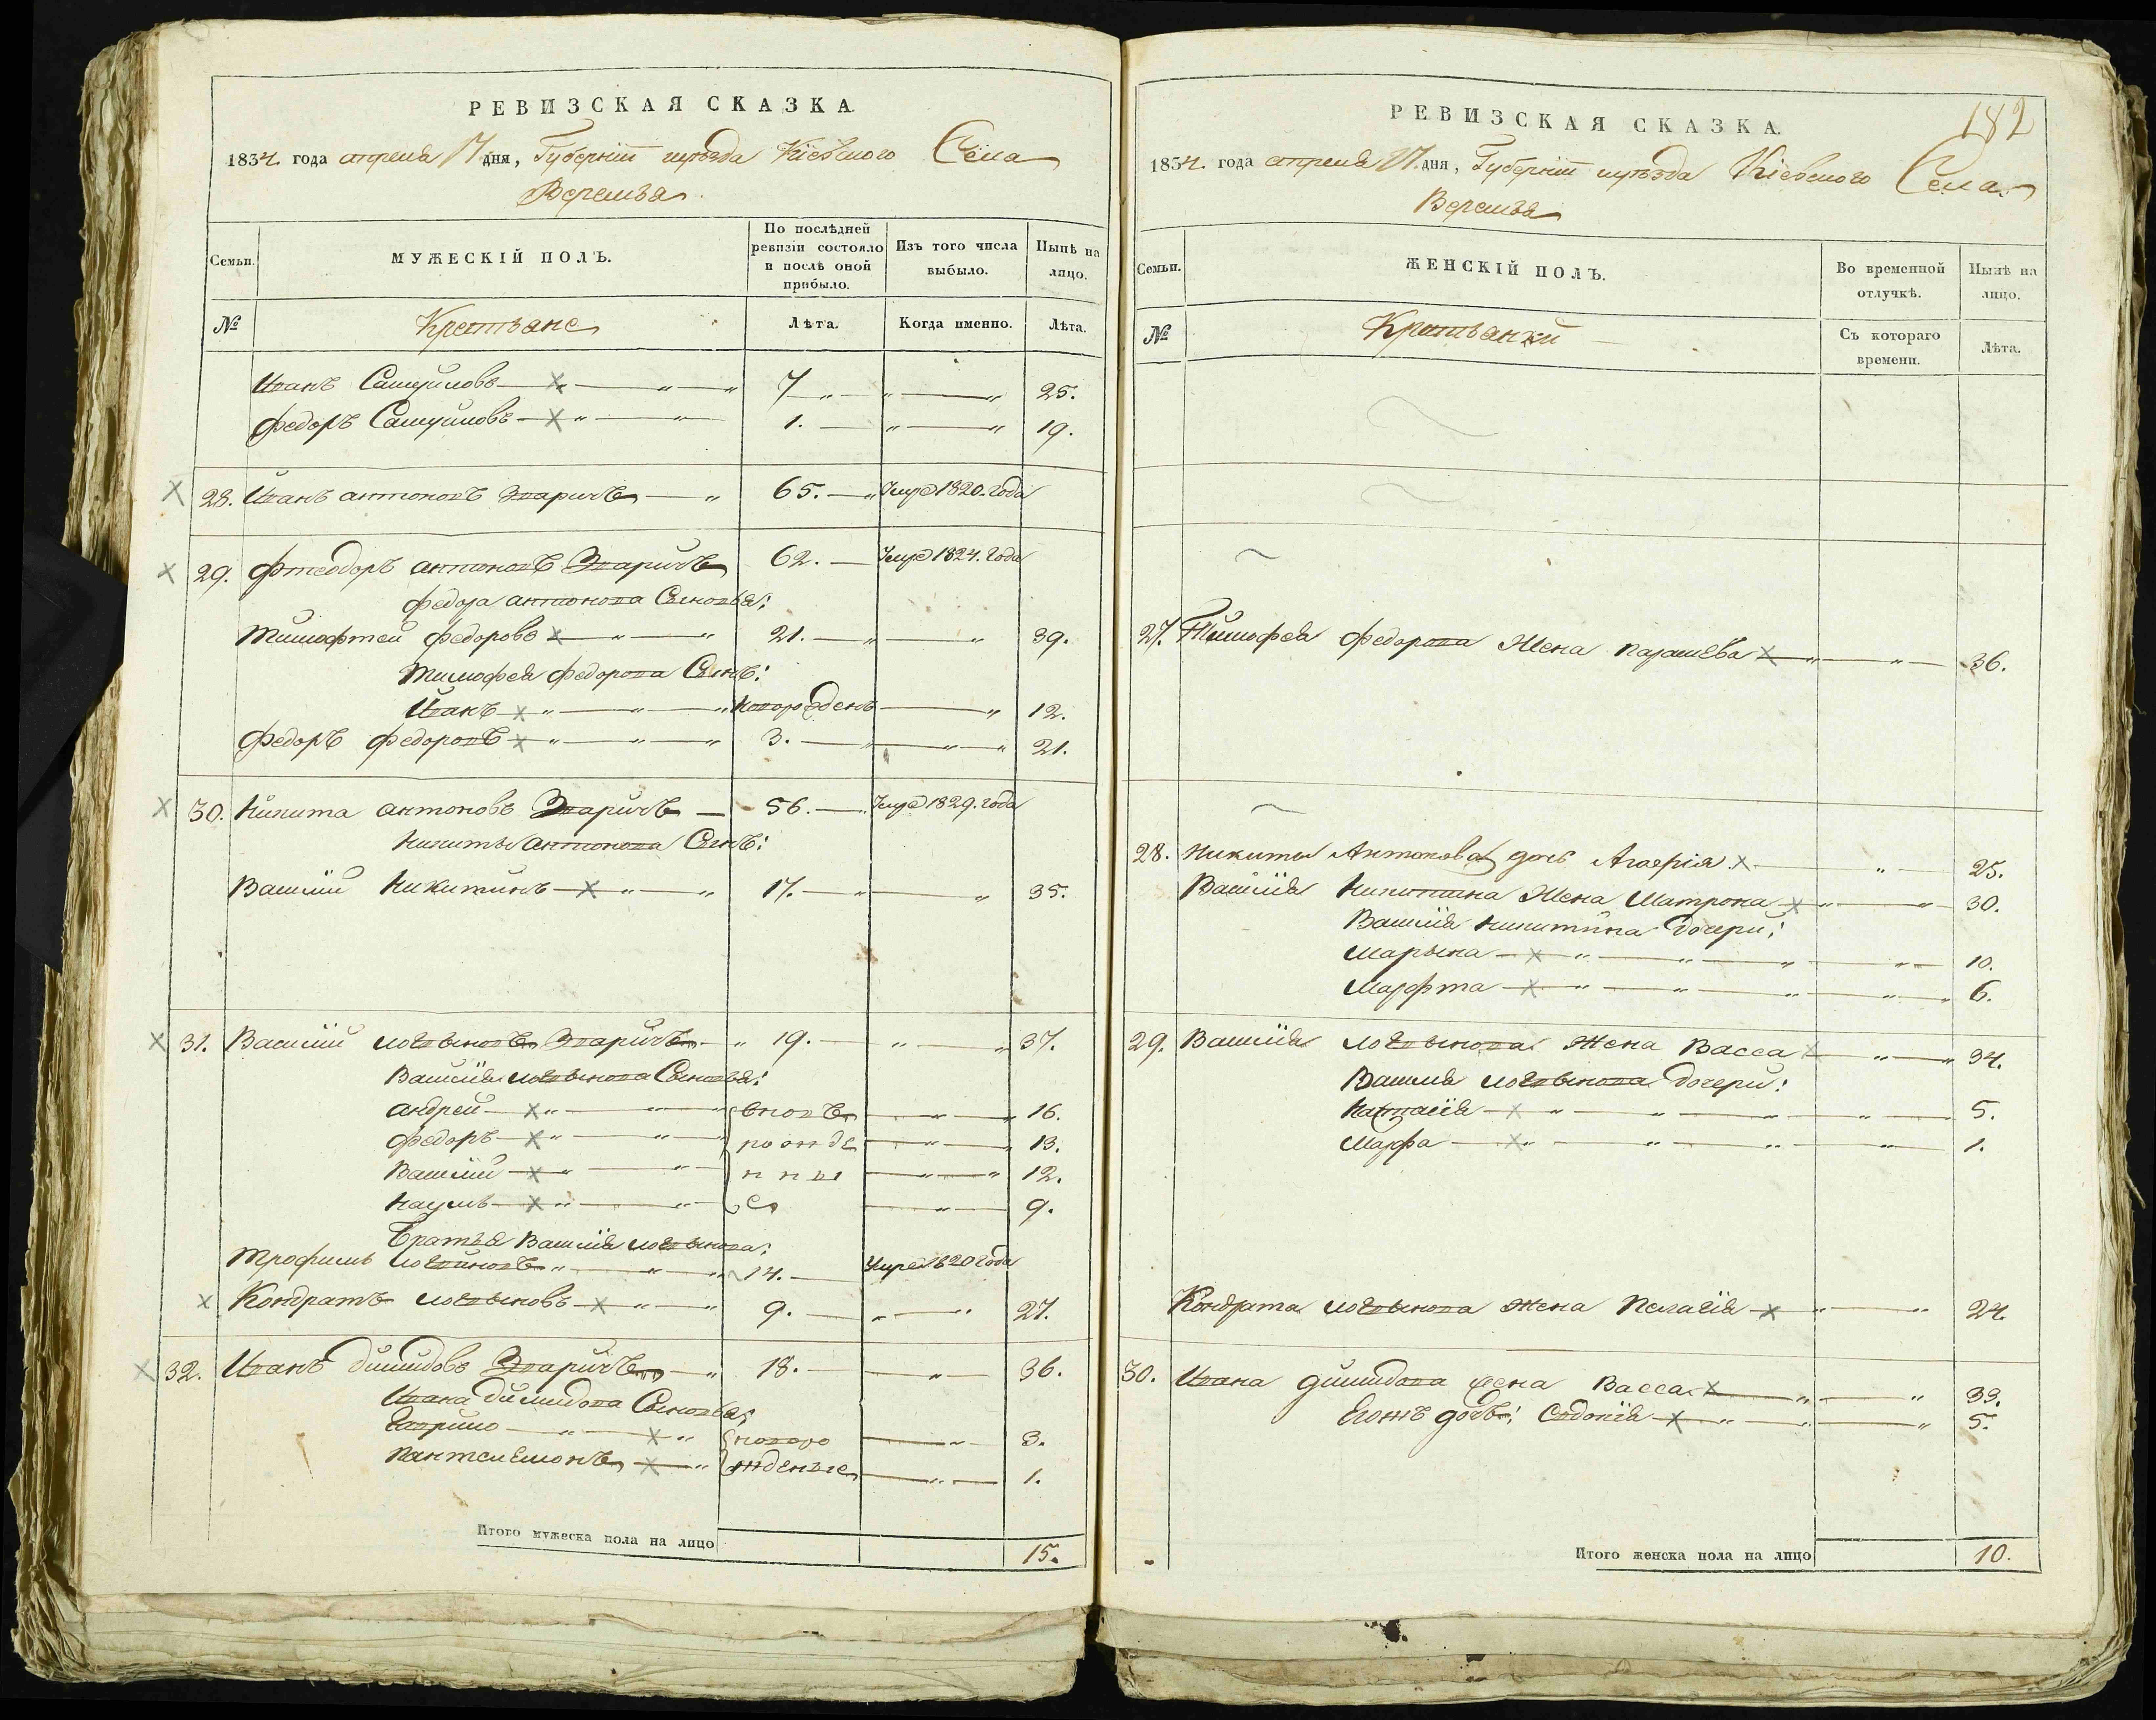 РЕВИЗСКАЯ СКАЗКА
1834. года апреля 17 дня, Губерніи иуѣзда Кіевского Села
Веремья
Семьи.
МУЖЕСКІЙ ПОЛЪ.
По послѣдней ревизіи состояло и послѣ оной прибыло.
Изъ того числа выбыло.
Нынѣ на лицо.
№
Крестьяне
Лѣта.
Когда именно.
Лѣта.
Иванъ Самуйловъ 7 25.
Федоръ Самуйловъ 1. 19.
28. Иванъ антоновъ 65. Умре 1820. года
29. Фтеодоръ антоновъ 62. Умре 1824. года
Федора антонова Сыновья:
Тимофтей Федоровъ 21. 39.
Тимофея Федорова Сынъ:
Иванъ новорожденъ 12.
Федоръ Федоровъ 3. 21.
30. Никита антоновъ 56. Умре 1829. года
Никиты антонова Сынъ:
Василій Никитинъ 17. 35.
31. Василій 19. 37.
Василія Сыновья:
андрей вновъ 16.
Федоръ рожде 13.
Василій нны 12.
Наумъ е 9.
Братья Василія
Трофимъ 14. Умре 1820 года
Кондратъ 9. 27.
32. Иванъ димидовъ 18. 36.
Ивана димидова Сыновья:
новоро 3.
Пантелемонъ жденые 1.
Итого мужеска пола на лицо 15.
182
РЕВИЗСКАЯ СКАЗКА.
1834. года апреля 17. дня, Губерніи иуѣзда Кіевского Села
Веремья
Семьи.
ЖЕНСКІЙ ПОЛЪ.
Во временной отлучкѣ.
Нынѣ на лицо.
№
Крестьянки
Съ котораго времени.
Лѣта.
27. Тимофея Федорова Жена 36.
28. Никиты Антонова дочь 25.
Василія Никитина Жена Матрона 30.
Василія Никитина Дочери:
Марьяна 10.
Марфта 6.
29. Василія Жена Васса 34.
Василия Дочери:
5.
Марфа 1.
Кондрата жена Пелагія 24.
30. Ивана димидова жена Васса 33.
Егожъ дочь: 5.
Итого женска пола на лицо 10.